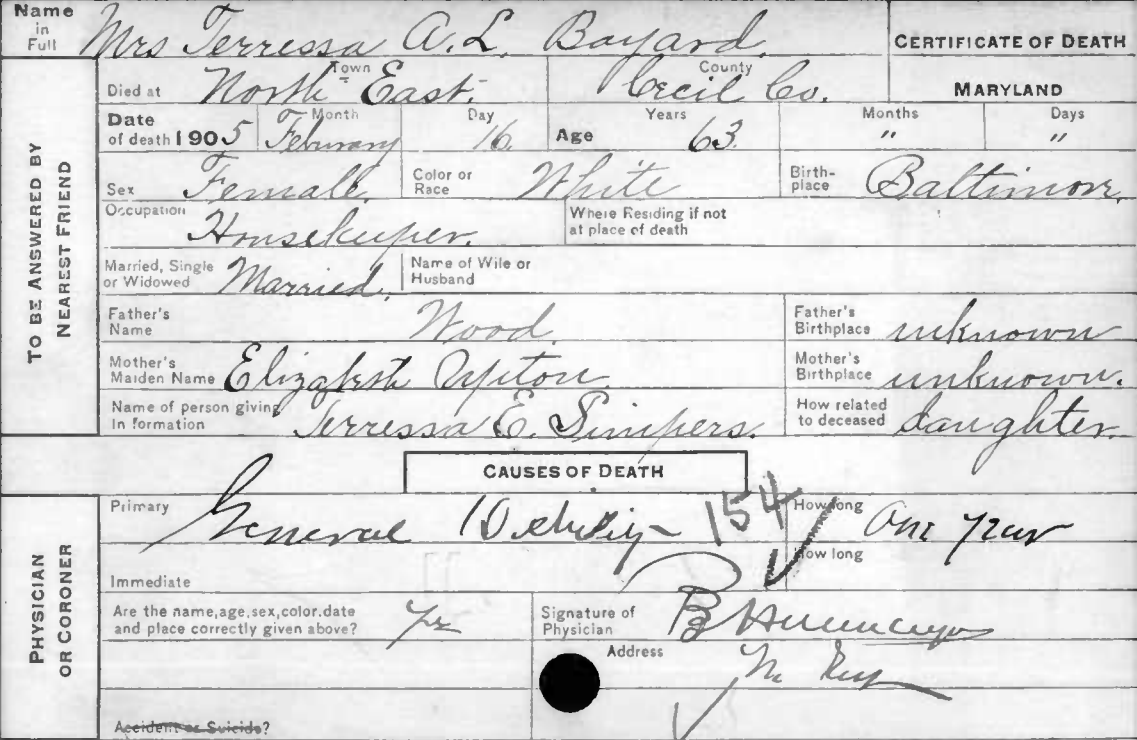 Name in Full Mrs Terressa A. L. Bayard.
CERTIFICATE OF DEATH
Died at North East. Town Cecil Co. County
MARYLAND
Date of death 1905 Month Feburary Day 16. Age Years 63 Months " Days "
Sex Female. Color or Race White Birth-place Baltimore.
Occupation Housekeeper. Where Residing if not at place of death
Married, Single or Widowed Married. Name of Wife or Husband
Father's Name Wood. Father's Birthplace unknown
Mother's Maiden Name Elizabeth Upton Mother's Birthplace unknown.
Name of person giving In formation Terressa E. Simpers. How related to deceased daughter.
TO BE ANSWERED BY NEAREST FRIEND
CAUSES OF DEATH
Primary General Debility 154 How long One year
Immediate How long
Are the name,age,sex,color.date and place correctly given above? Yes Signature of Physician
Address
Accident or Suicide?
PHYSICIAN OR CORONER